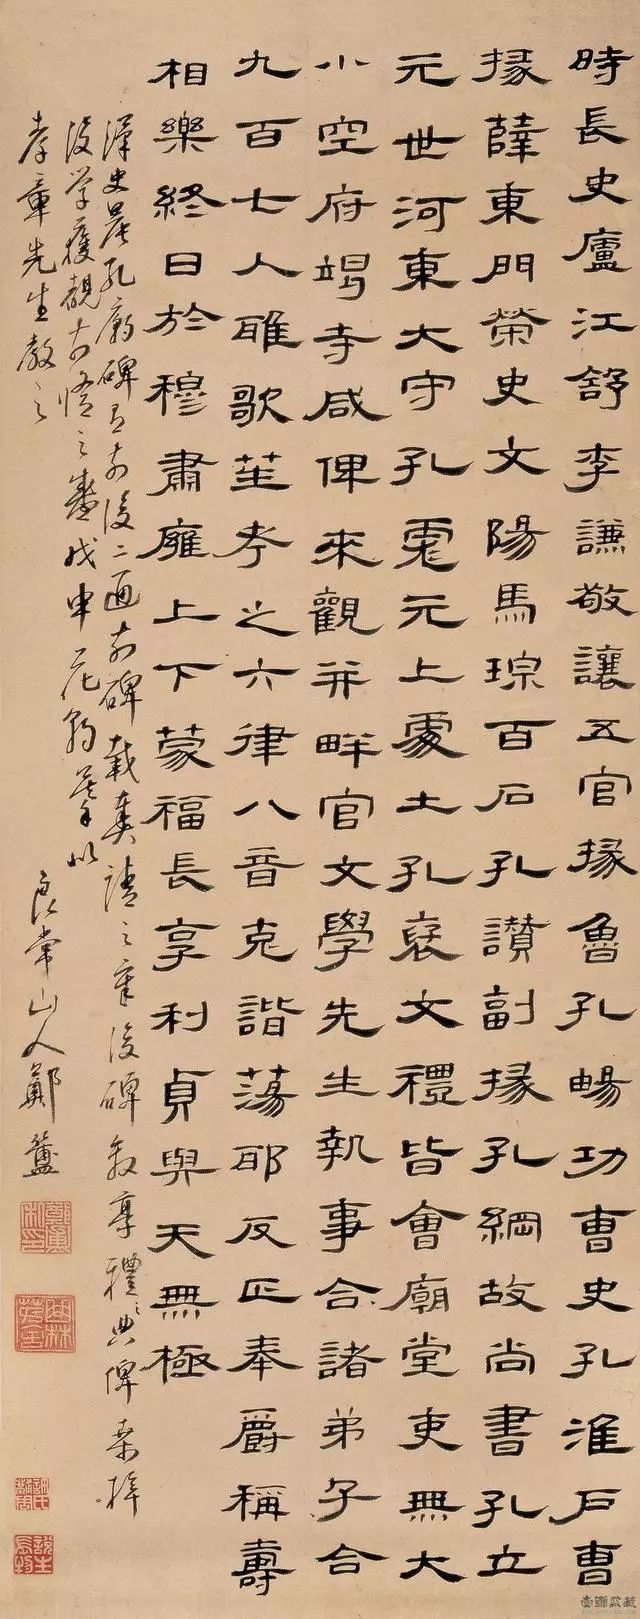 時長史廬江舒李謙敬讓五官掾魯孔暘功曹史孔淮戶曹
掾薛東門榮史文陽馬琮百石孔讃副掾孔綱故尚書孔立
元世河東大守孔彪元上處土孔裦文禮皆會廟堂吏無大
小空府竭寺咸俾來觀并畔官文學先生執事合諸弟子合
九百七人雎歌荎考之六律八音克諧蕩耶反正奉爵稱壽
相樂終日於穆肅廱上下蒙福長享利貞與天無極
漢史晨孔廟碑有前後二通前碑載奏請之章後碑敘享禮之典俾
後學獲觀而悟之歲戊申花朝摹以
孝章先生教之
良常山人鄭簠